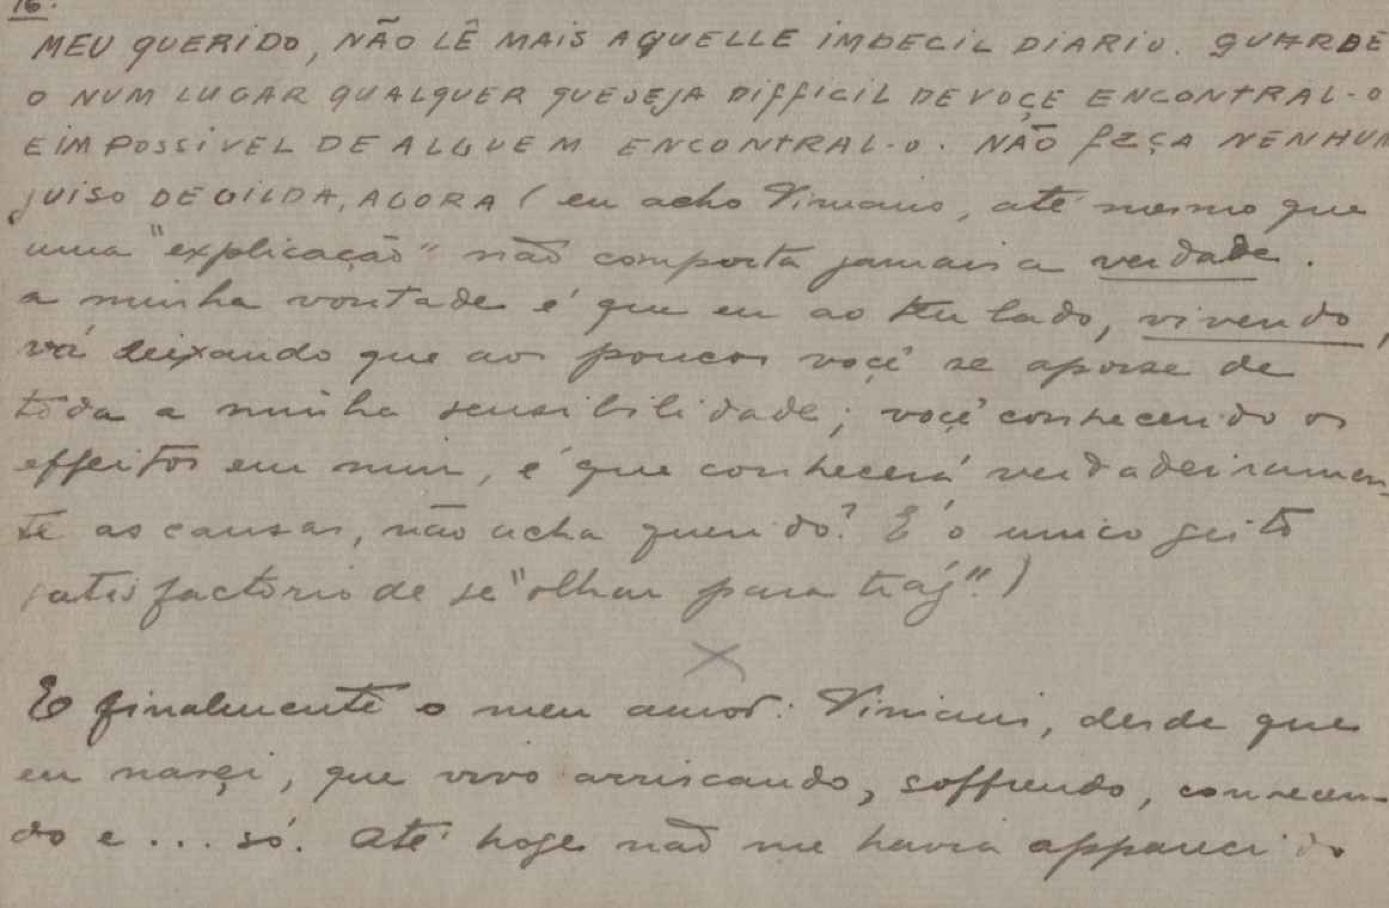 16.
MEU QUERIDO, NÃO LÊ MAIS AQUELLE IMBECIL DIARIO. GUARDE
O NUM LUGAR QUALQUER QUE SEJA DIFFICIL DE VOÇE ENCONTRAL-O
E IMPOSSIVEL DE ALGUEM ENCONTRAL-O. NÃO FAÇA NENHUM
JUISO DE GILDA, AGORA (eu acho Viniciuis, até mesmo que
uma "explicação" não comporta jamais a verdade.
a minha vontade é que eu ao teu lado, vivendo,
vá deixando que aos poucos voçê se aposse de
toda a minha sensibilidade; voçê conhecendo os
effeitos em mim, é que conhecerá verdadeiramen-
te as causas, não acha querido? E' o unico geito
satisfactorio de se "olhar para tráz".)
X
E finalmente o meu amor: Viniciuis, desde que
eu nasçi, que vivo arriscando, soffrendo, conhecen-
do e... só. Até hoje não me havia apparecido